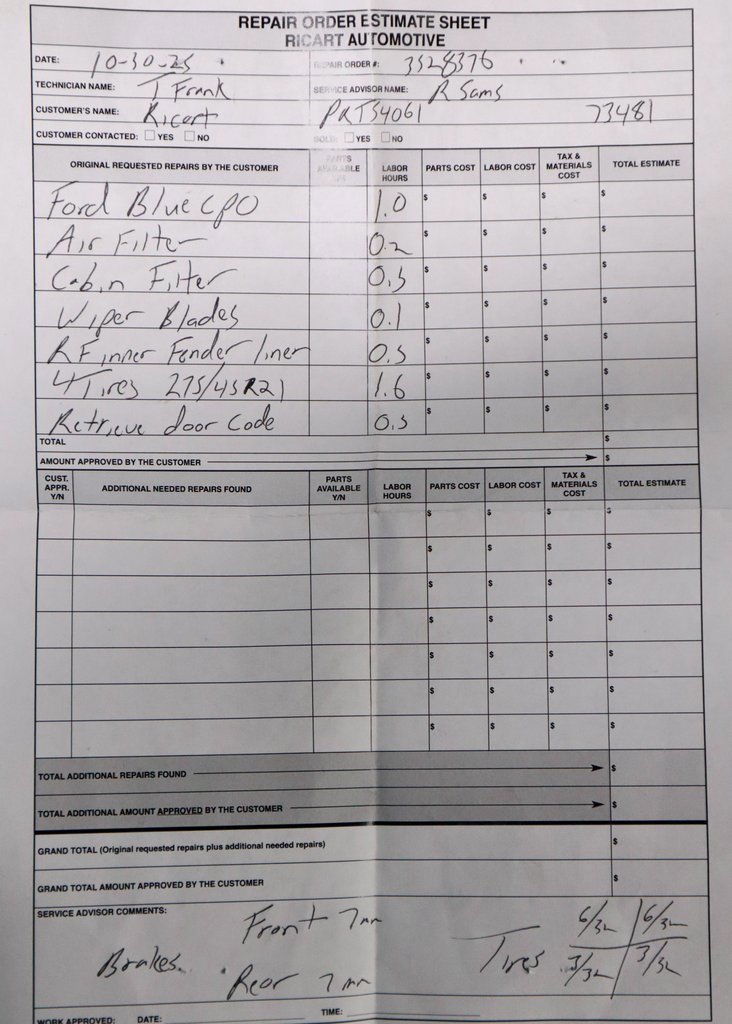 REPAIR ORDER ESTIMATE SHEET
RICART AUTOMOTIVE
DATE: 10-30-25 REPAIR ORDER #: 3528376
TECHNICIAN NAME: T Frank SERVICE ADVISOR NAME: R Sams
CUSTOMER'S NAME: Ricart PRT54061 73481
CUSTOMER CONTACTED: YES NO SOLD: YES NO
ORIGINAL REQUESTED REPAIRS BY THE CUSTOMER PARTS AVAILABLE LABOR HOURS PARTS COST LABOR COST TAX & MATERIALS COST TOTAL ESTIMATE
Ford Blue CPO 1.0 $ $ $ $
Air Filter 0.2 $ $ $ $
Cabin Filter 0.3 $ $ $ $
Wiper Blades 0.1 $ $ $ $
RF inner Fender liner 0.5 $ $ $ $
4 Tires 275/45R21 1.6 $ $ $ $
Retrieve door Code 0.3 $ $ $ $
TOTAL $
AMOUNT APPROVED BY THE CUSTOMER $
CUST. APPR. Y/N ADDITIONAL NEEDED REPAIRS FOUND PARTS AVAILABLE Y/N LABOR HOURS PARTS COST LABOR COST TAX & MATERIALS COST TOTAL ESTIMATE
$ $ $ $
$ $ $ $
$ $ $ $
$ $ $ $
$ $ $ $
$ $ $ $
$ $ $ $
TOTAL ADDITIONAL REPAIRS FOUND $
TOTAL ADDITIONAL AMOUNT APPROVED BY THE CUSTOMER $
GRAND TOTAL (Original requested repairs plus additional needed repairs) $
GRAND TOTAL AMOUNT APPROVED BY THE CUSTOMER $
SERVICE ADVISOR COMMENTS:
Front 7mm 6/32 6/32
Brakes Tires
Rear 7mm 3/32 3/32
WORK APPROVED: DATE: TIME: